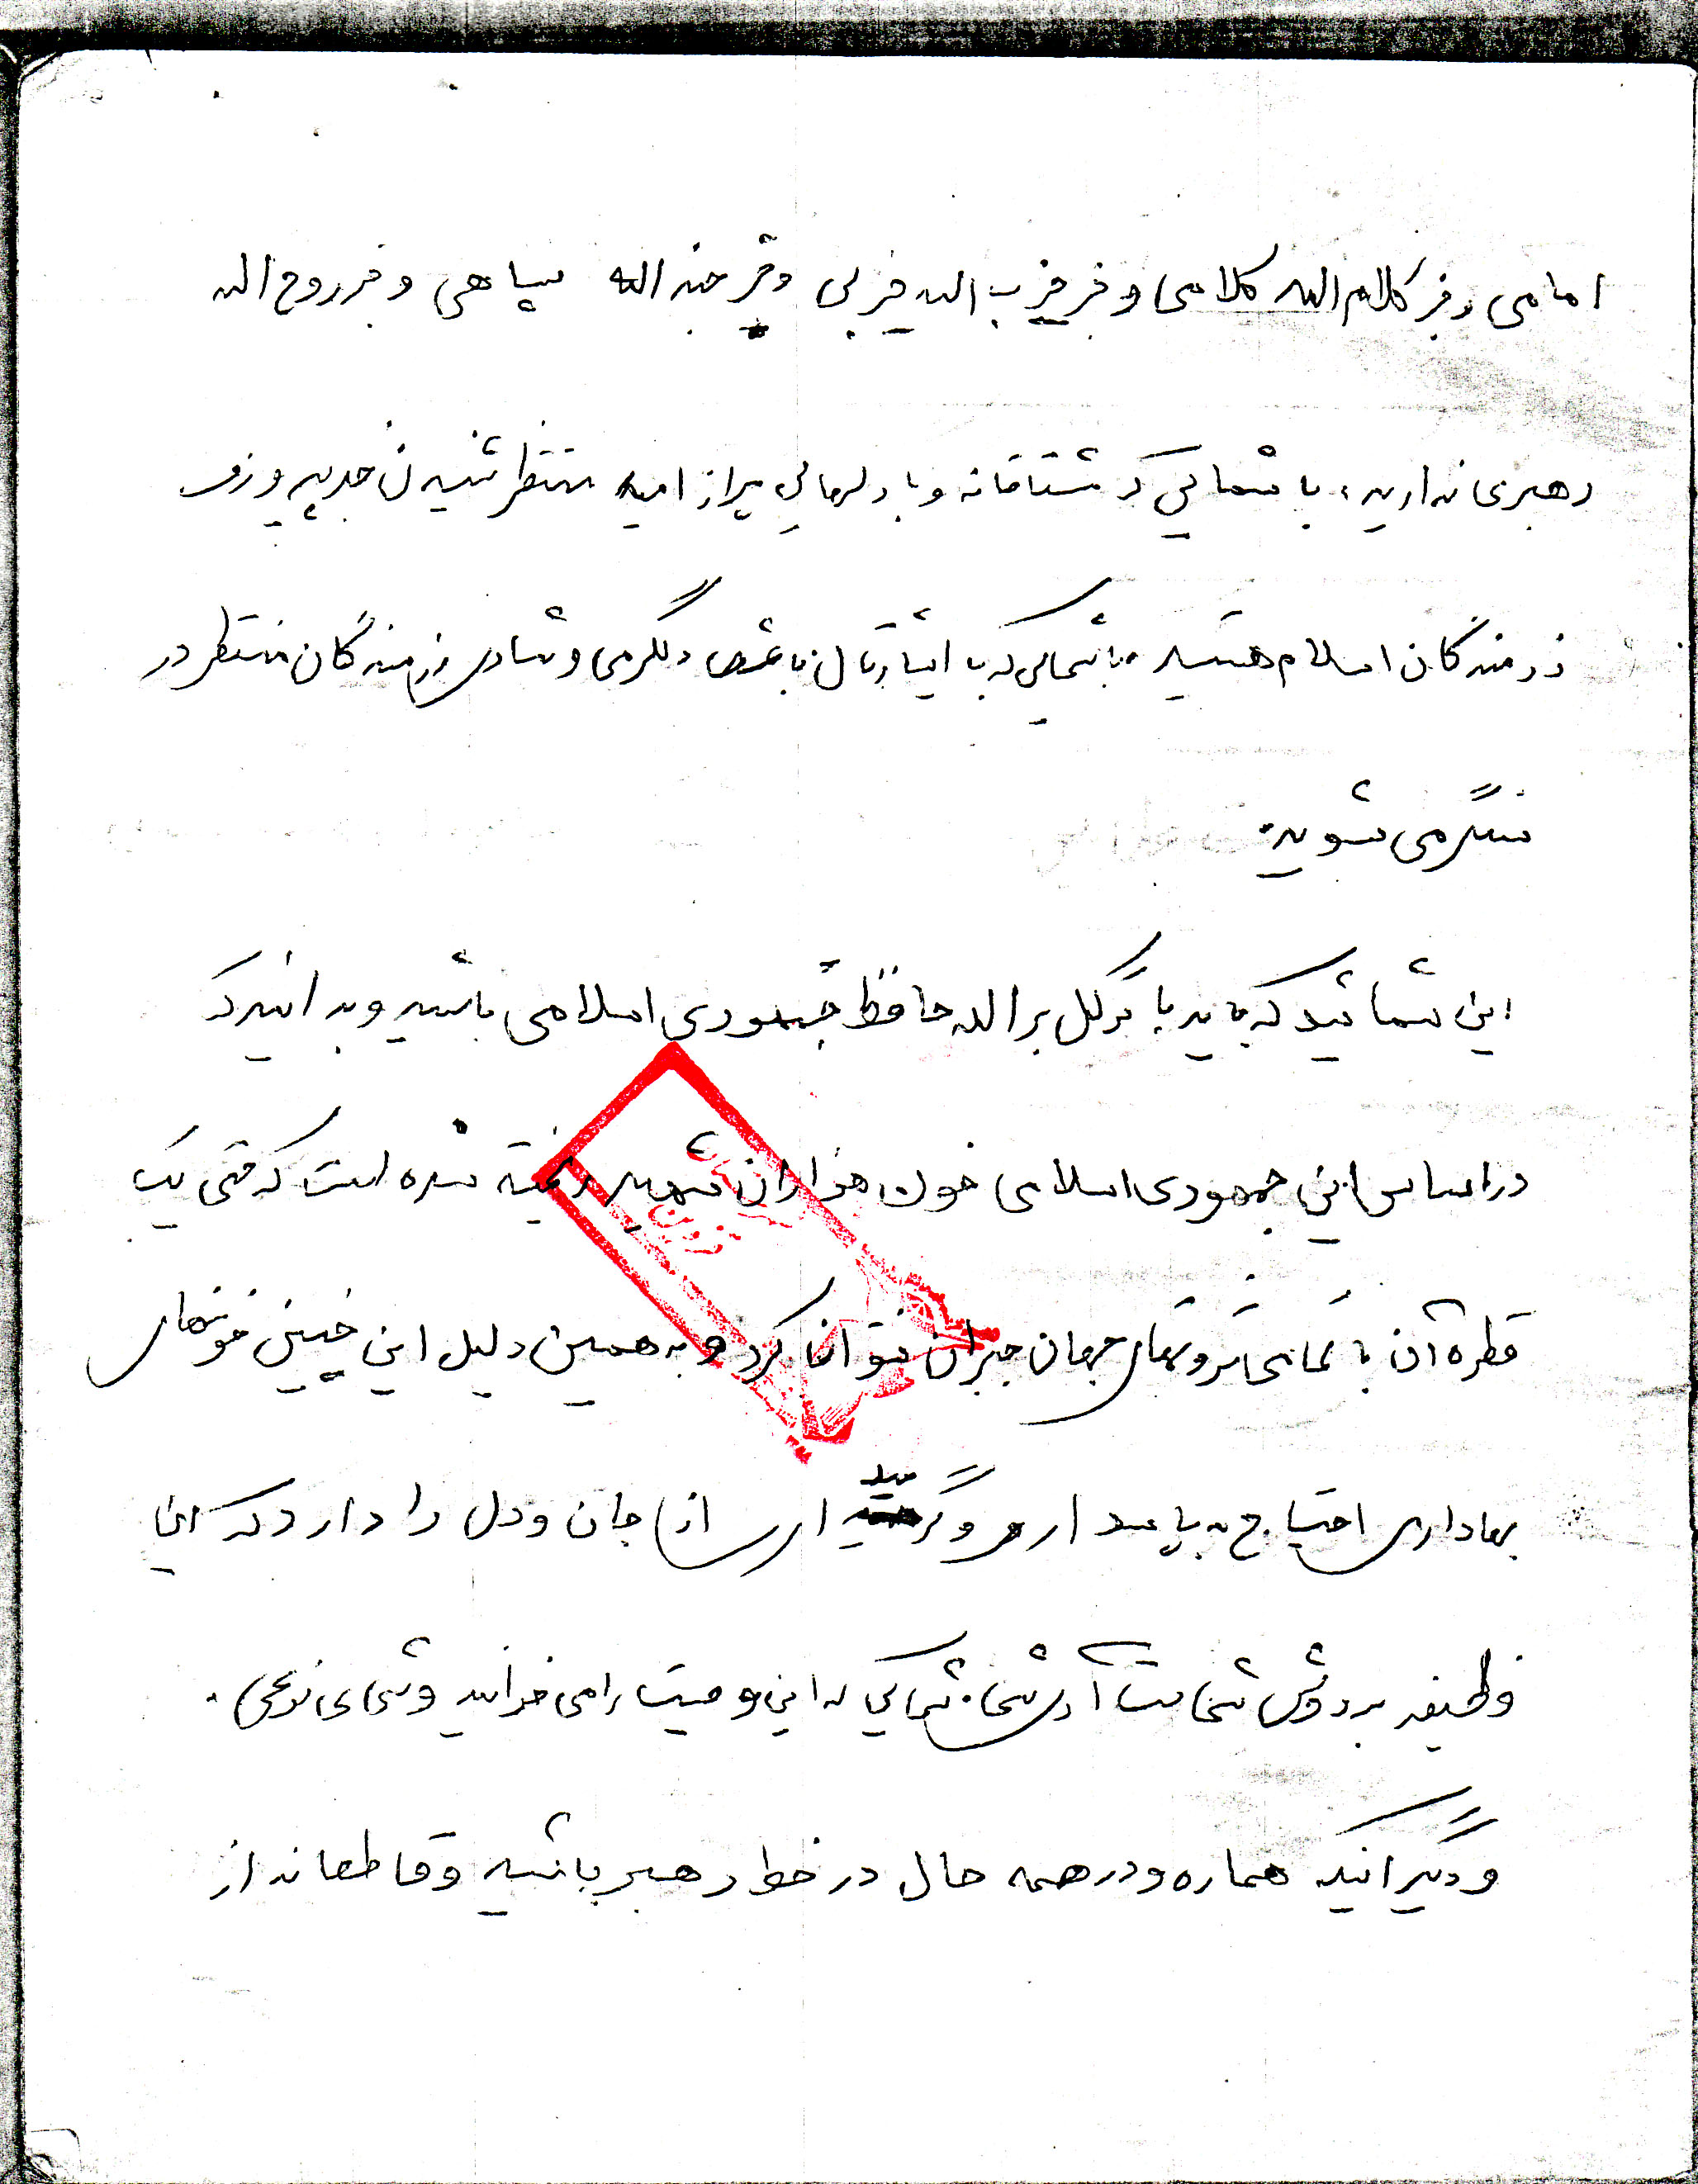 امامی وجز کلام الله کلامی وجز حزب الله حزبی وجز جند الله سپاهی وجز روح الله
رهبری ندارید، با شمایی که مشتاقانه و با دلهایی پر از امید منتظر شنیدن خبر پیروزی
رزمندگان اسلام هستید، با شمایی که با ایثار مال باعث دلگرمی و شادی رزمندگان منتظر در
سنگر می شوید.
این شمائید که باید با توکل بر الله حافظ جمهوری اسلامی باشید و بدانید که
در اساس این جمهوری اسلامی خون هزاران شهید ریخته شده است که حتی یک
قطره آن با تمامی ثروتهای جهان جبران نتوان کرد و به همین دلیل این چنین خونهای
بهاداری احتیاج به پاسداری و از جان و دل را دارد که این
وظیفه بر دوش شماست آری شما، شمایی که این وصیت را می خوانید و شمای نوعی.
و دیگر اینکه هماره و در همه حال در خط رهبر باشید و قاطعانه از